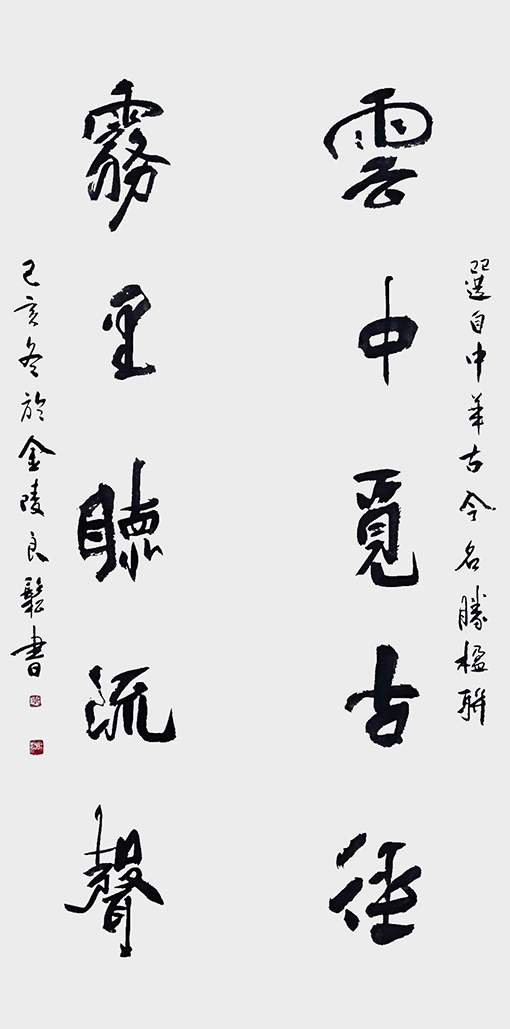 選自中華古今名勝楹聯
雲中覓古徑
霧里聽流聲
己亥冬於金陵良鬆書